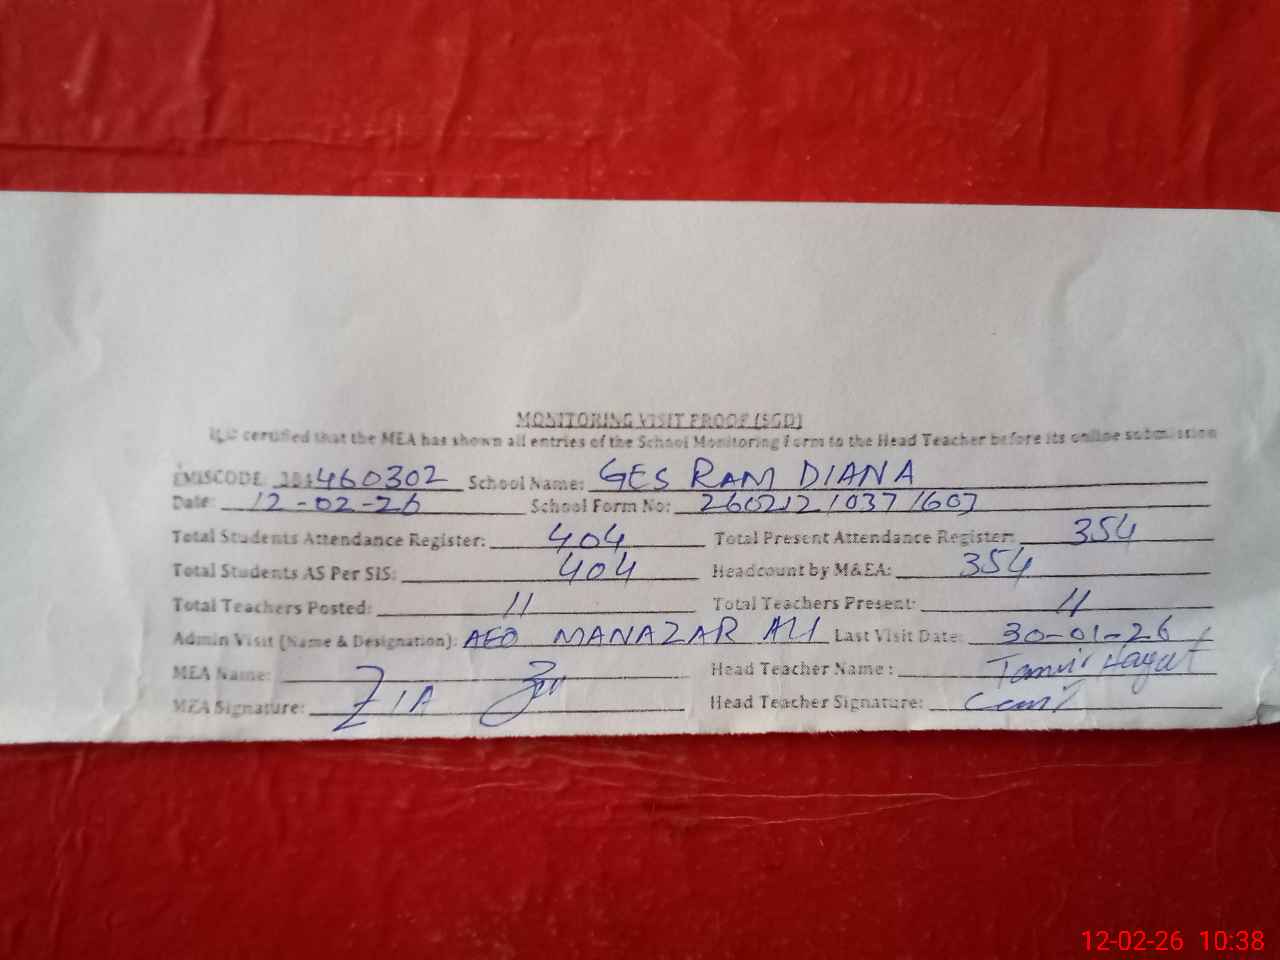 MONITORING VISIT PROOF (SGD)
It is certified that the MEA has shown all entries of the School Monitoring Form to the Head Teacher before its online submission
EMISCODE: 384460302 School Name: GES RAM DIANA
Date: 12-02-26 School Form No: 260212/037/603
Total Students Attendance Register: 404 Total Present Attendance Register: 354
Total Students AS Per SIS: 404 Headcount by M&EA: 354
Total Teachers Posted: 11 Total Teachers Present: 11
Admin Visit (Name & Designation): AEO MANAZAR ALI Last Visit Date: 30-01-26
MEA Name: ZIA Head Teacher Name: Tanvir Hayat
MEA Signature: Head Teacher Signature:
12-02-26 10:38